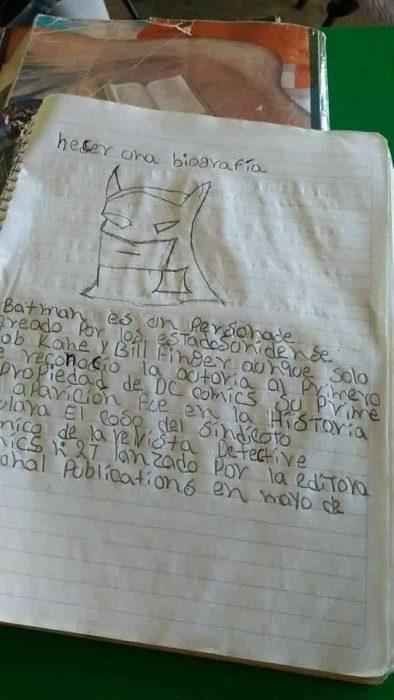 hecer una biografía
Batman es un personade
creado por los estadosunidense
ob Kane y Bill Finger aunque solo
e reconocio la autoria al primero
propiedad de DC comics su prime
aparicion fue en la HisToria
ulava El caso del sindicoto
mico de la revista Detective
mics K 27 lanzado por la ediTora
onal Publications en mayo de